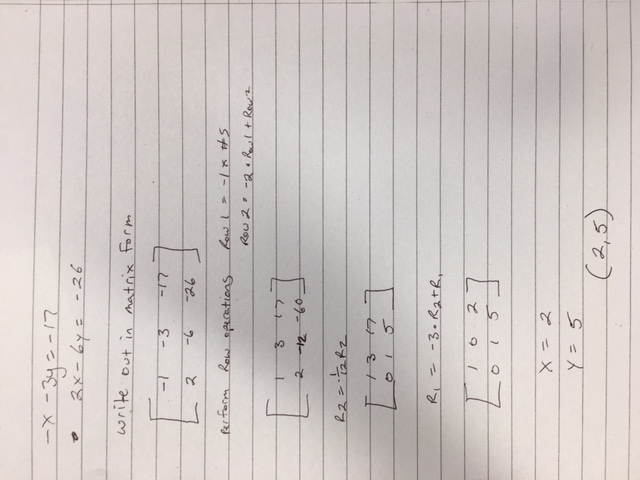 -x - 3y = -17
2x - 6y = -26
write out in matrix form
-1 -3 -17
2 -6 -26
Perform Row operations Row 1 = -1 * #s
Row 2 = -2 • Row 1 + Row 2
1 3 17
2 -12 -60
R2 = -1/12 R2
1 3 17
0 1 5
R1 = -3 • R2 + R1
1 0 2
0 1 5
x = 2
y = 5
(2,5)